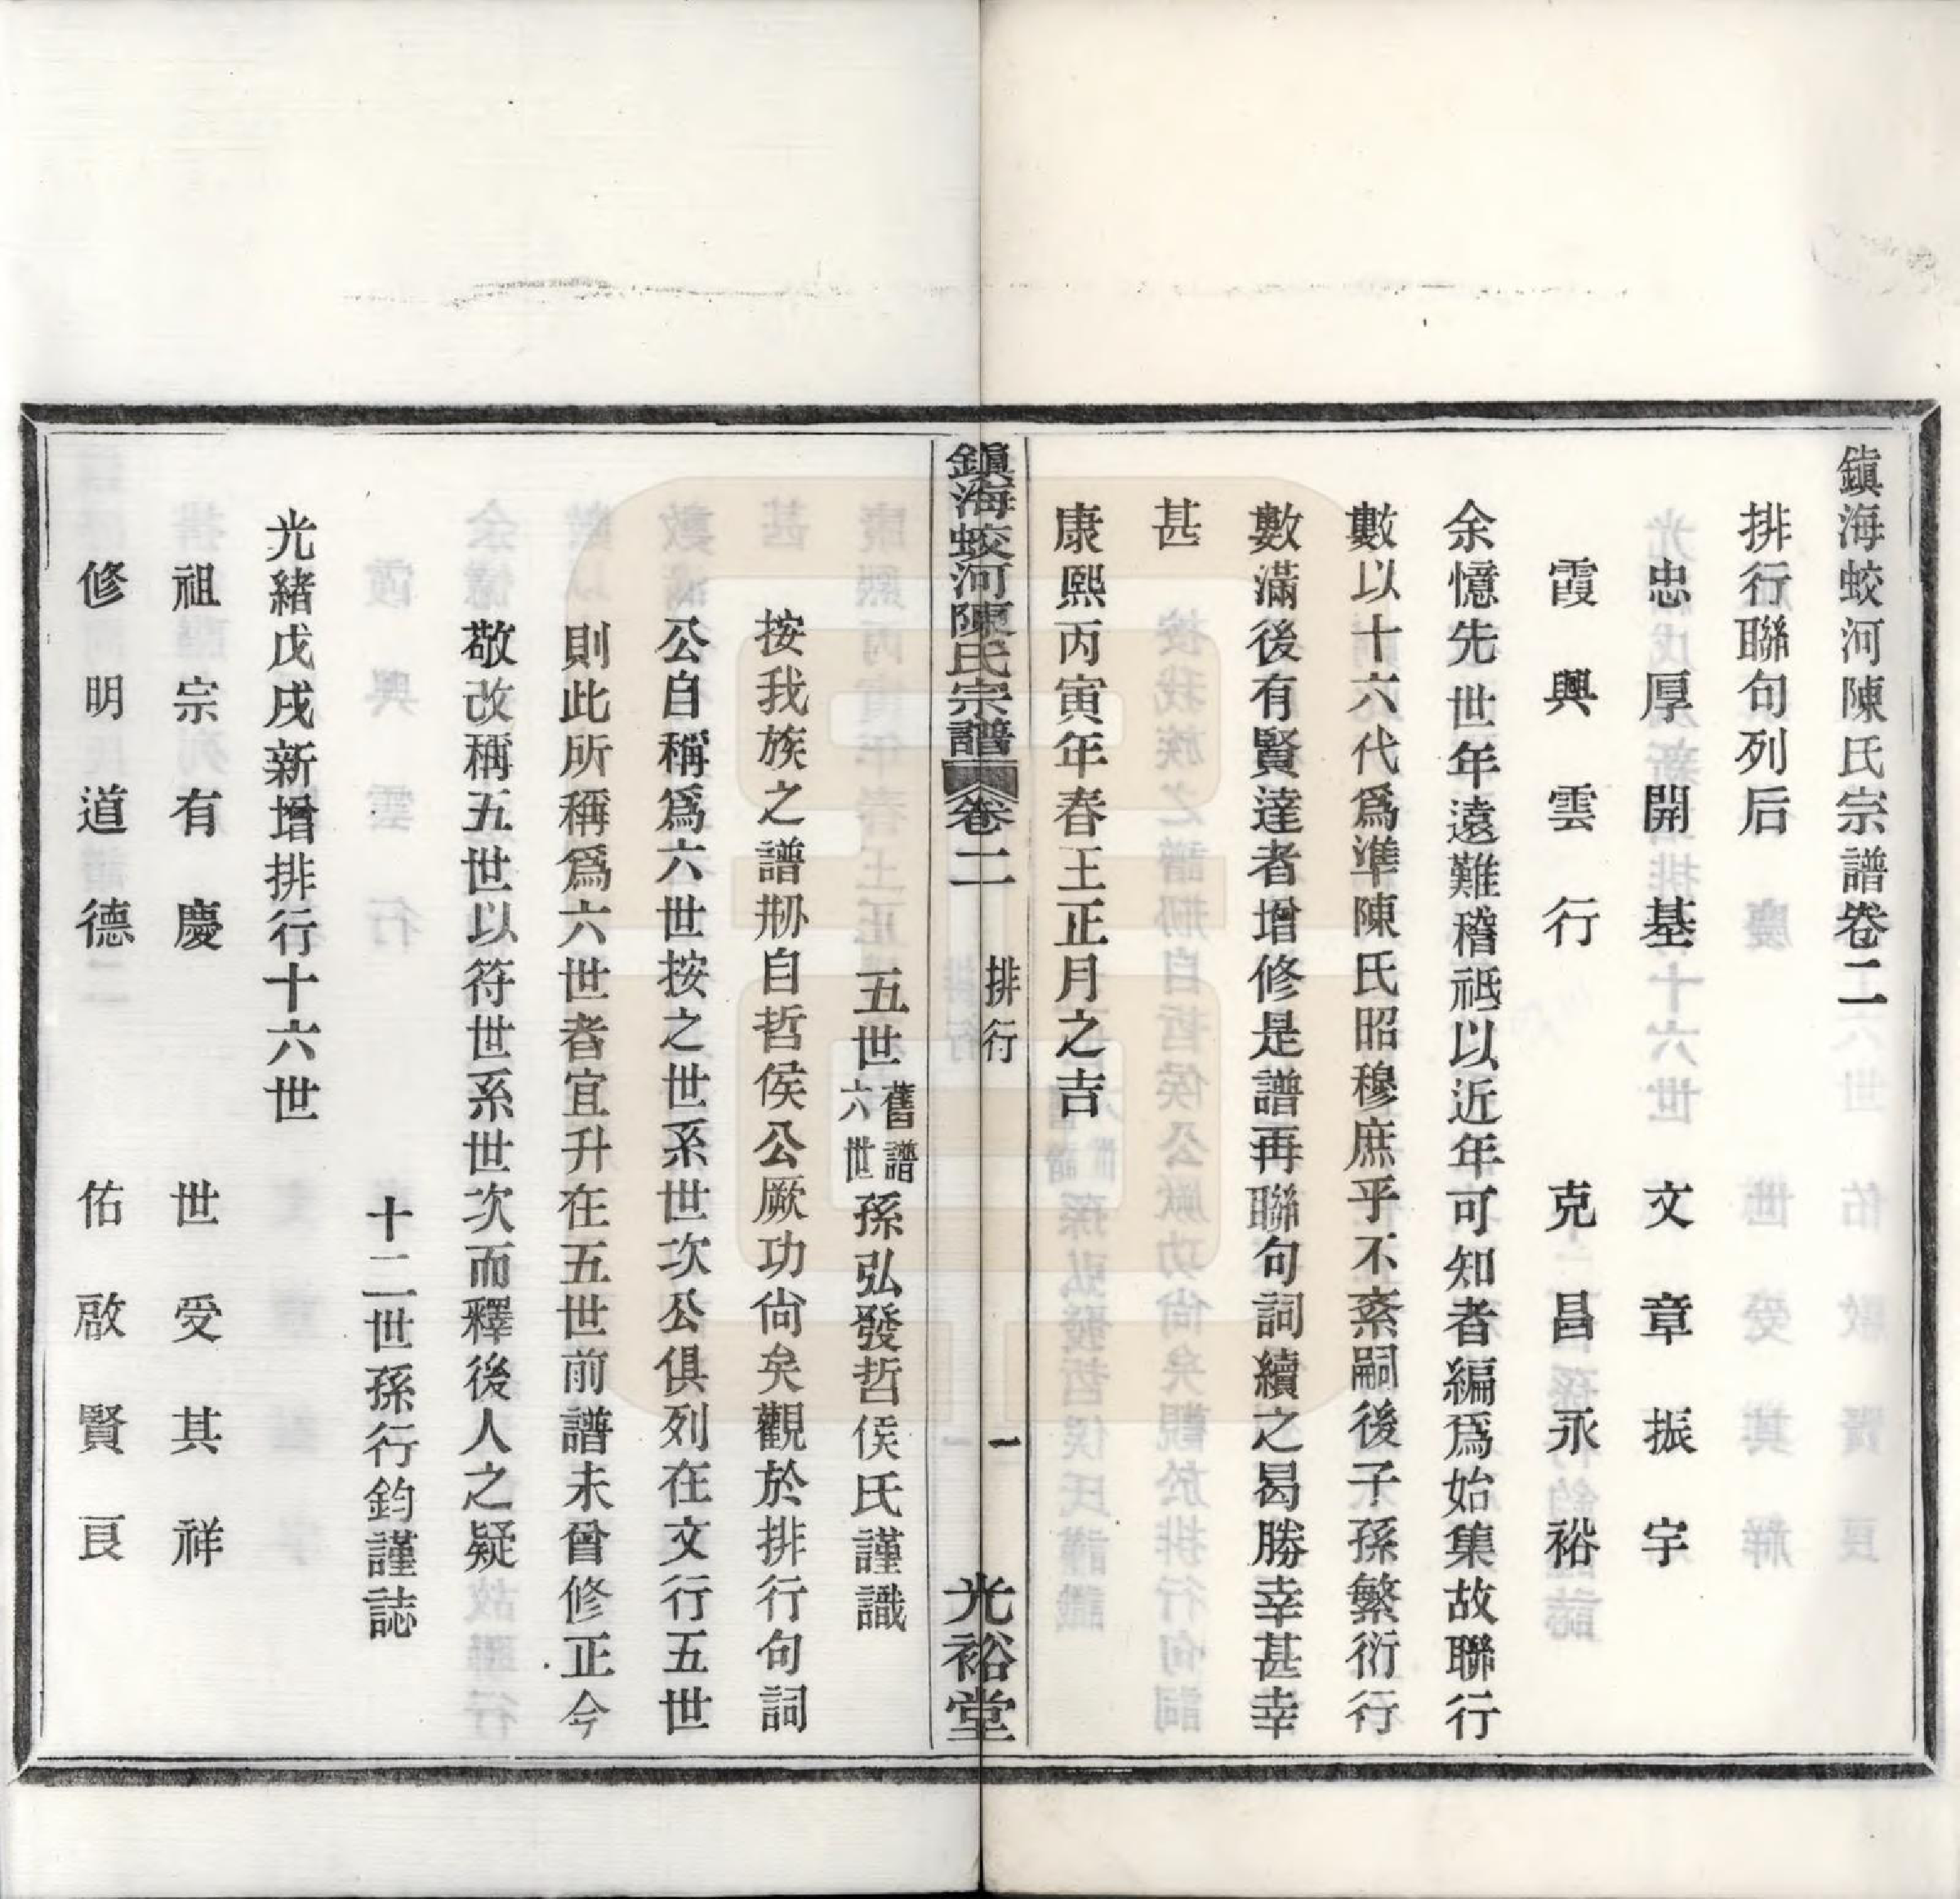 鎮海蛟河陳氏宗譜卷二
排行聯句列后
忠厚開基 文章振宇
霞興雲行 克昌永裕
余憶先世年遠難稽祗以近年可知者編爲始集故聯行
數以十六代爲準陳氏昭穆庶乎不紊嗣後子孫繁衍行
數滿後有賢達者增修是譜再聯句詞續之曷勝幸甚幸
甚
康熙丙寅年春王正月之吉
鎮海蛟河陳氏宗譜 卷二 排行 一 光裕堂
五世舊譜六世孫弘發哲侯氏謹識
按我族之譜刱自哲侯公厥功尙矣觀於排行句詞
公自稱爲六世按之世系世次公俱列在文行五世
則此所稱爲六世者宜升在五世前譜未曾修正今
敬改稱五世以符世系世次而釋後人之疑
十二世孫行鈞謹誌
光緒戊戌新增排行十六世
祖宗有慶 世受其祥
修明道德 佑啟賢良